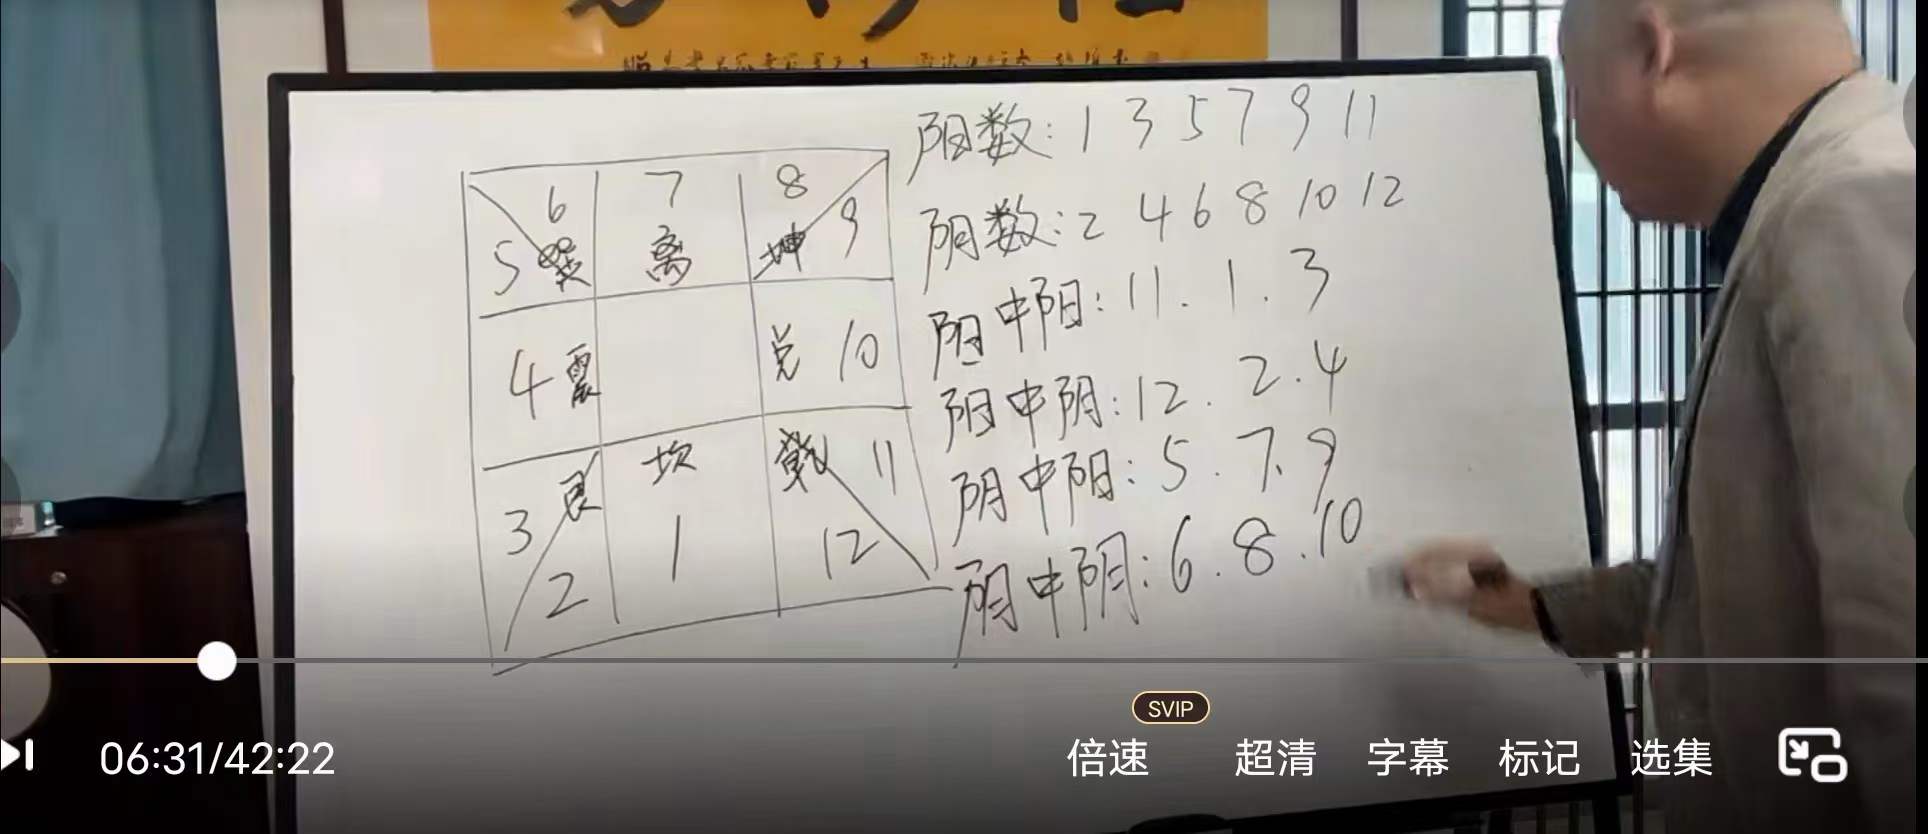 阳数: 1 3 5 7 9 11
阴数: 2 4 6 8 10 12
阳中阳: 11. 1. 3
阳中阴: 12. 2. 4
阴中阳: 5. 7. 9
阴中阴: 6. 8. 10
6 7 8
5 巽 离 坤 9
4 震 兑 10
艮 坎 乾 11
3 1 12
2
SVIP
06:31/42:22 倍速 超清 字幕 标记 选集